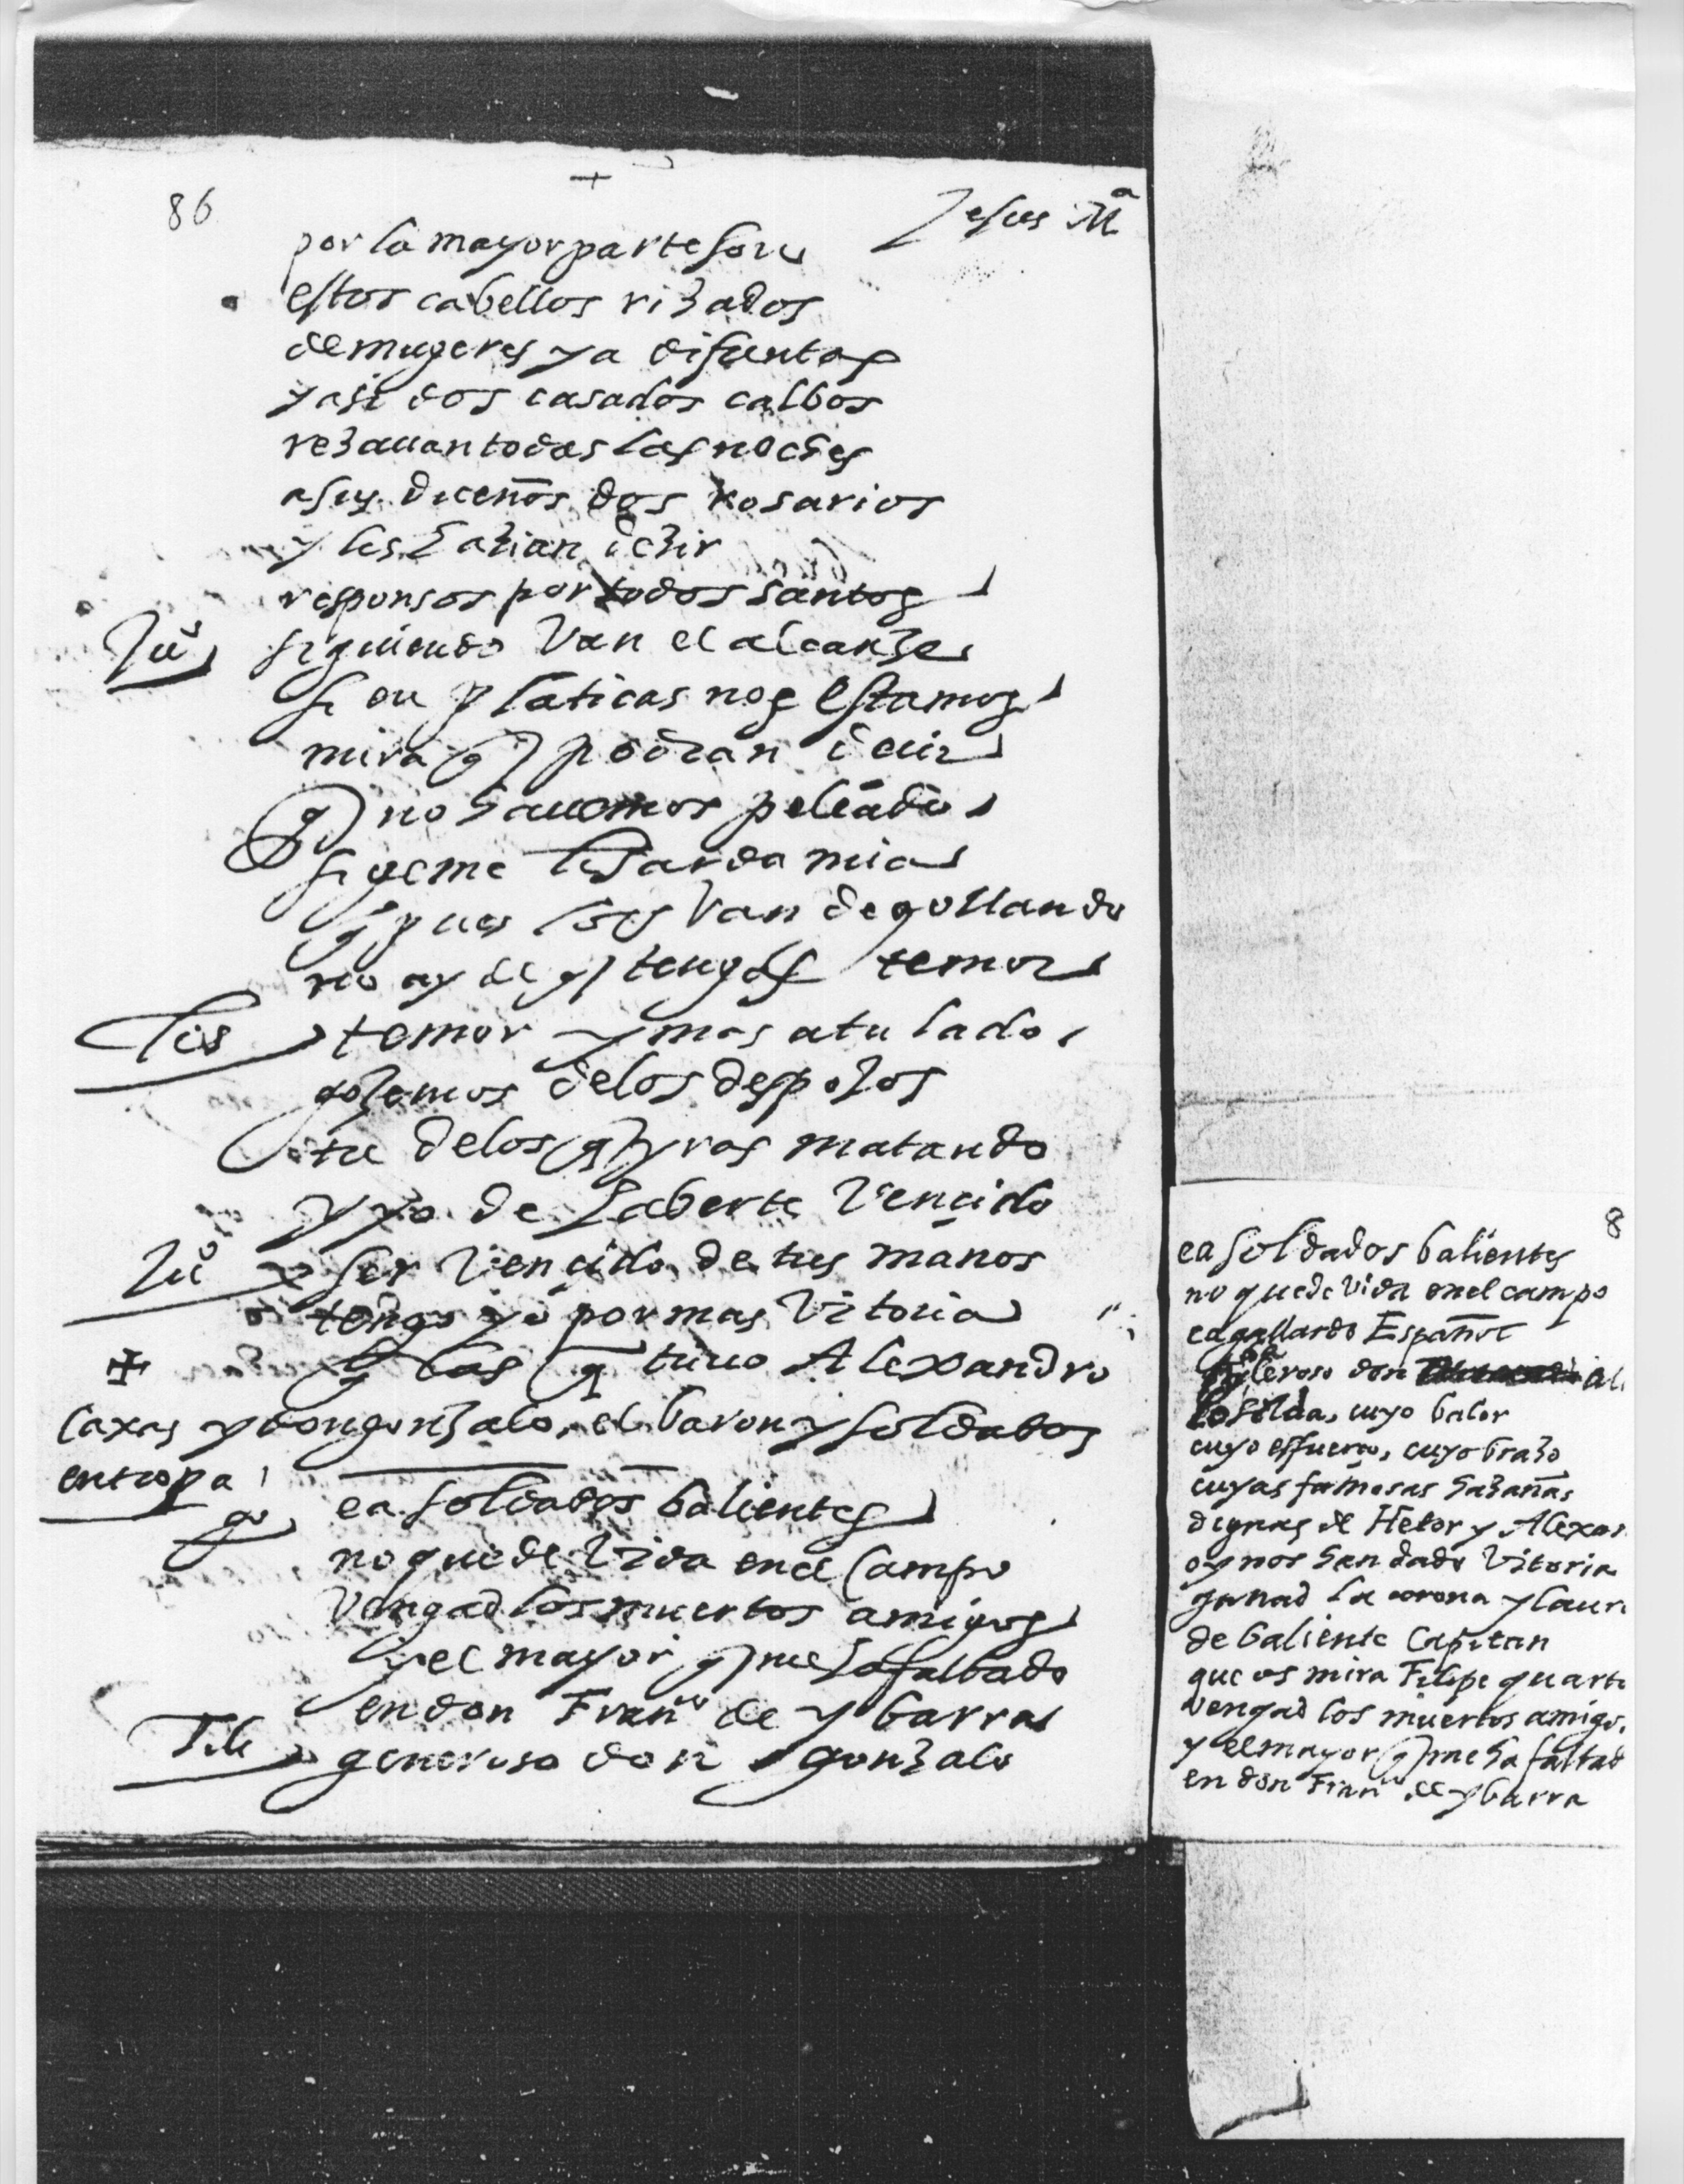 86
Jesus Mª
por la mayor parte son
estos cabellos rizados
de mugeres ya difuntas
y asi dos casados calbos
rezauan todas las noches
a sus dueños dos rosarios
y les hazian dezir
responsos por todos santos
Juº siguiendo van el alcanze
si en platicas nos estamos
mira q podran decir
q no hauemos peleado
sigeme lisarda mia
q pues los van degollando
no ay de q tengas temor
Lis temor y mas a tu lado
gozemos delos despojos
tu delos q yras matando
y yo de haberte vencido
Juº ser vencido de tus manos
tengo yo por mas vitoria
q las q tuuo Alexandro
caxas y don gonzalo, el baron y soldados
en tropa
go ea soldados balientes
no quede vida en el campo
vengad los muertos amigos
y el mayor q me ha faltado
en don Franco de ybarra
Tile generoso don gonzalo
8
ea soldados balientes
no quede vida en el campo
ea gallardo Español
baleroso don
cuyo balor
cuyo esfuerço, cuyo brazo
cuyas famosas hazañas
dignas de Hetor y Alexan
oy nos han dado vitoria
ganad la corona y laur
de baliente capitan
que os mira Felipe quarto
vengad los muertos amigo
y el mayor q me ha faltad
en don Franco de ybarra